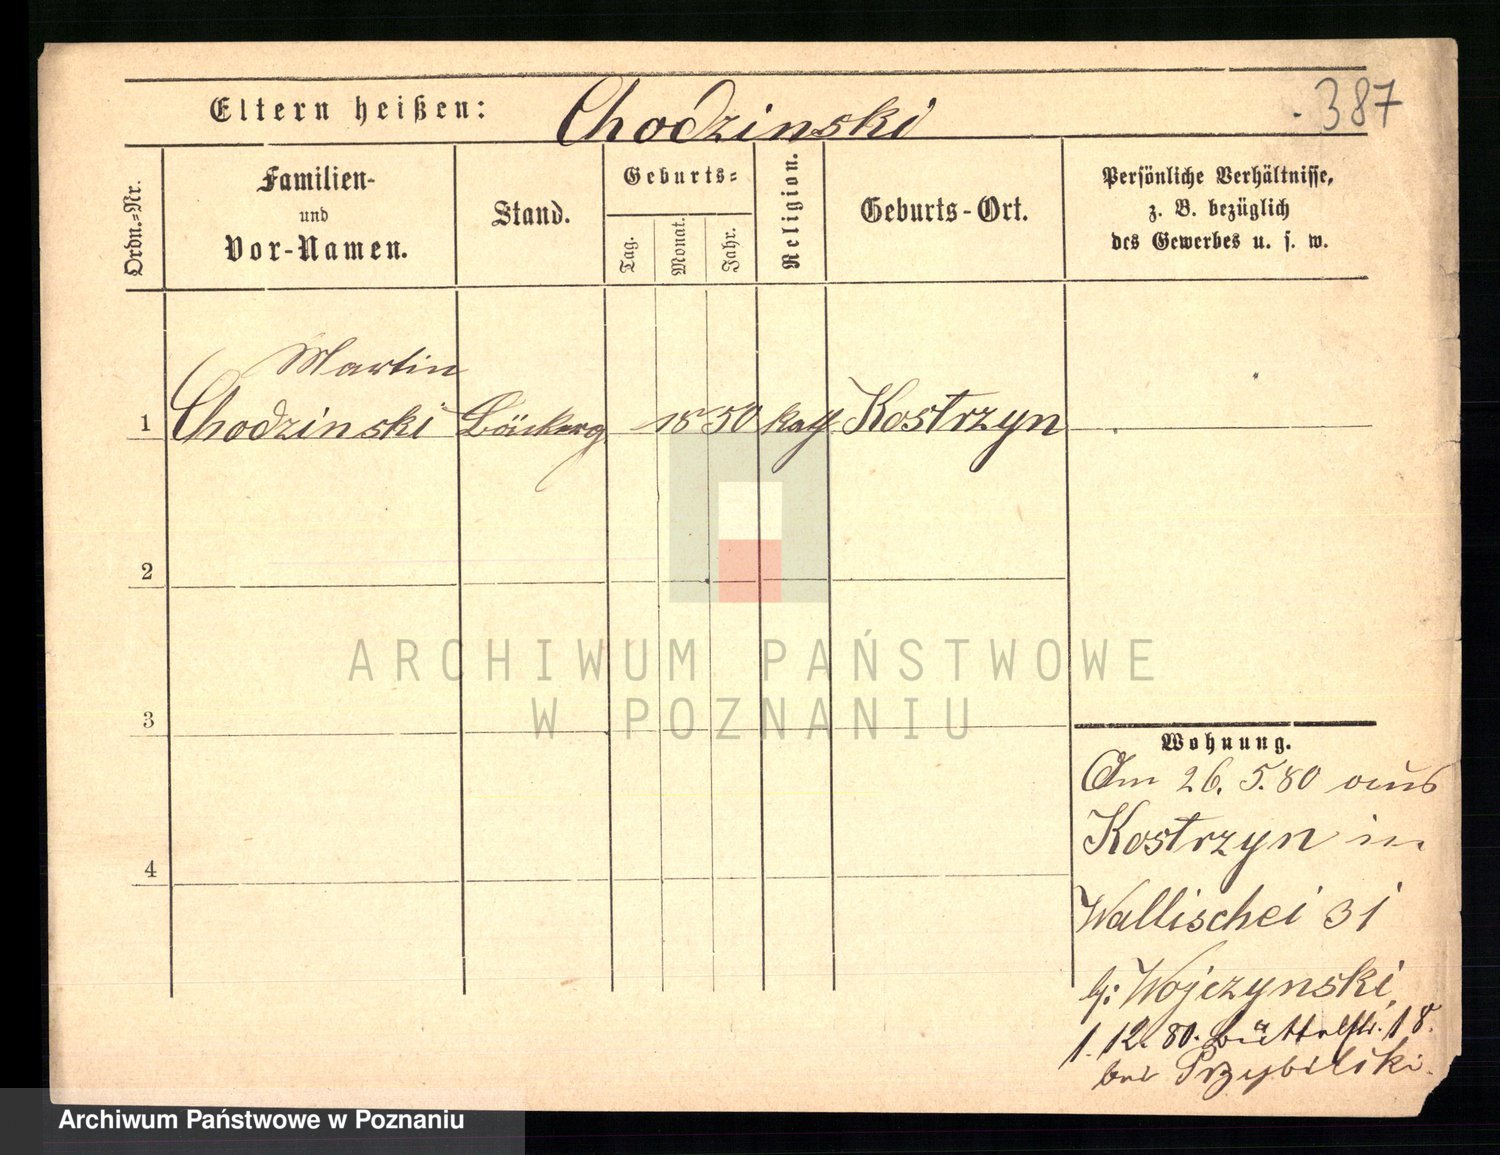 Eltern heißen: Chodzinski 387
Ordn.=Nr.
Familien-
und
Vor-Namen.
Stand.
Geburts=
Tag.
Monat.
Jahr.
Religion.
Geburts-Ort.
Persönliche Verhältnisse,
z. B. bezüglich
des Gewerbes u. s. w.
Martin
1 Chodzinski Bäckerg 1850 kath Kostrzyn
2
3
4
Wohnung.
Am 26. 5. 80 aus
Kostrzyn in
Wallischei 31
b: Wojczynski
1. 12. 80. Büttelstr. 18.
bei Przybilski.
ARCHIWUM PAŃSTWOWE
W POZNANIU
Archiwum Państwowe w Poznaniu